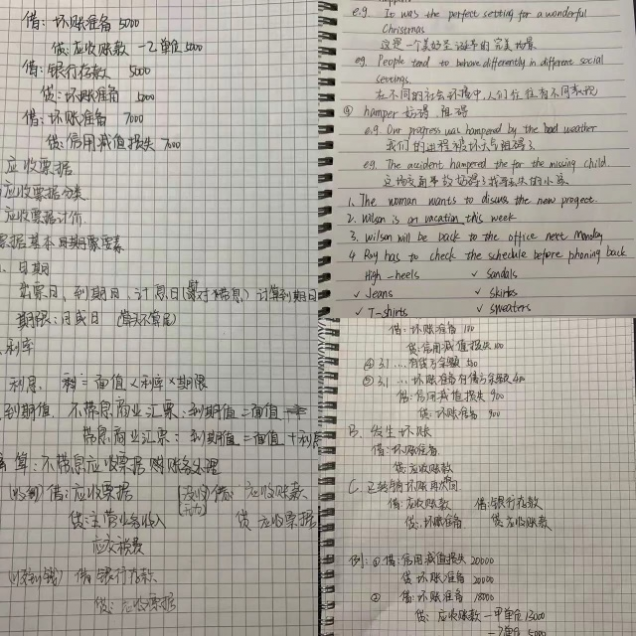 借：坏账准备 5000
贷：应收账款 一乙单位 5000
借：银行存款 5000
贷：坏账准备 5000
借：坏账准备 7000
贷：信用减值损失 7000
应收票据
应收票据分类
应收票据计价
日期
出票日，到期日，计息日 计算到期日
期限：月或日
利率
利息 = 面值 × 利率 × 期限
到期值 不带息商业汇票：到期值 = 面值
带息商业汇票：到期值 = 面值 + 利息
算：不带息应收票据 账务处理
借：应收票据 应收账款
贷：主营业务收入 贷 应收票据
应交税费
借：银行存款
贷：应收票据
e.g. It was the perfect setting for a wonderful
Christmas
这是一个美妙圣诞节的完美场景
eg. People tend to behave differently in different social
settings
在不同的社会环境中，人们往往有不同表现
④ hamper 妨碍 阻碍
e.g. Our progress was hampered by the bad weather
我们的进程被坏天气阻碍了
eg. The accident hampered the for the missing child.
1. The woman wants to discuss the new progect.
2. Wilson is an vacation this week
3. Wilson will be back to the office next Monday
4 Roy has to check the schedule before phoning back
High-heels ✓ Sandals
✓ Jeans ✓ Skirts
✓ T-shirts ✓ Sweaters
借：坏账准备 100
贷：信用减值损失 100
借：信用减值损失 900
贷：坏账准备 900
B. 发生坏账
借：坏账准备
贷：应收账款
C. 已转销坏账再收回
借：应收账款 借：银行存款
贷：坏账准备 贷：应收账款
例：① 借：信用减值损失 20000
贷：坏账准备 20000
② 借：坏账准备 18000
贷：应收账款 一甲单位 13000
一乙单位 5000